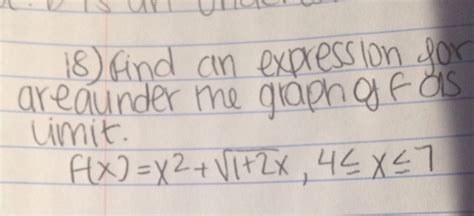 18) find an expression for
area under the graph of F as
limit.
f(x) = x² + √1+2x , 4 ≤ x ≤ 7